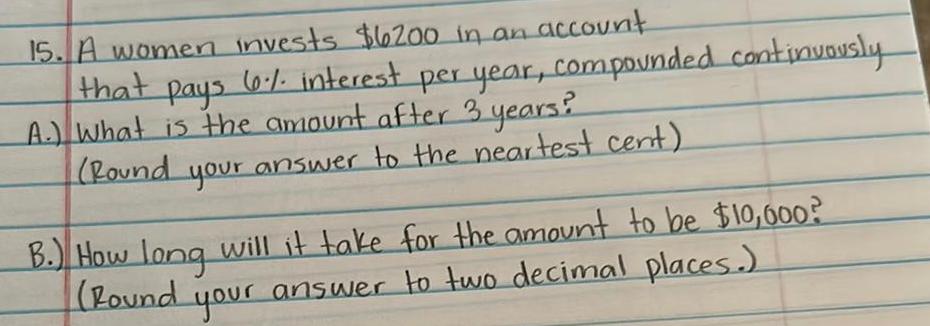 15. A women invests $6200 in an account
that pays 6% interest per year, compounded continuously
A.) What is the amount after 3 years?
(Round your answer to the neartest cent)
B.) How long will it take for the amount to be $10,000?
(Round your answer to two decimal places.)